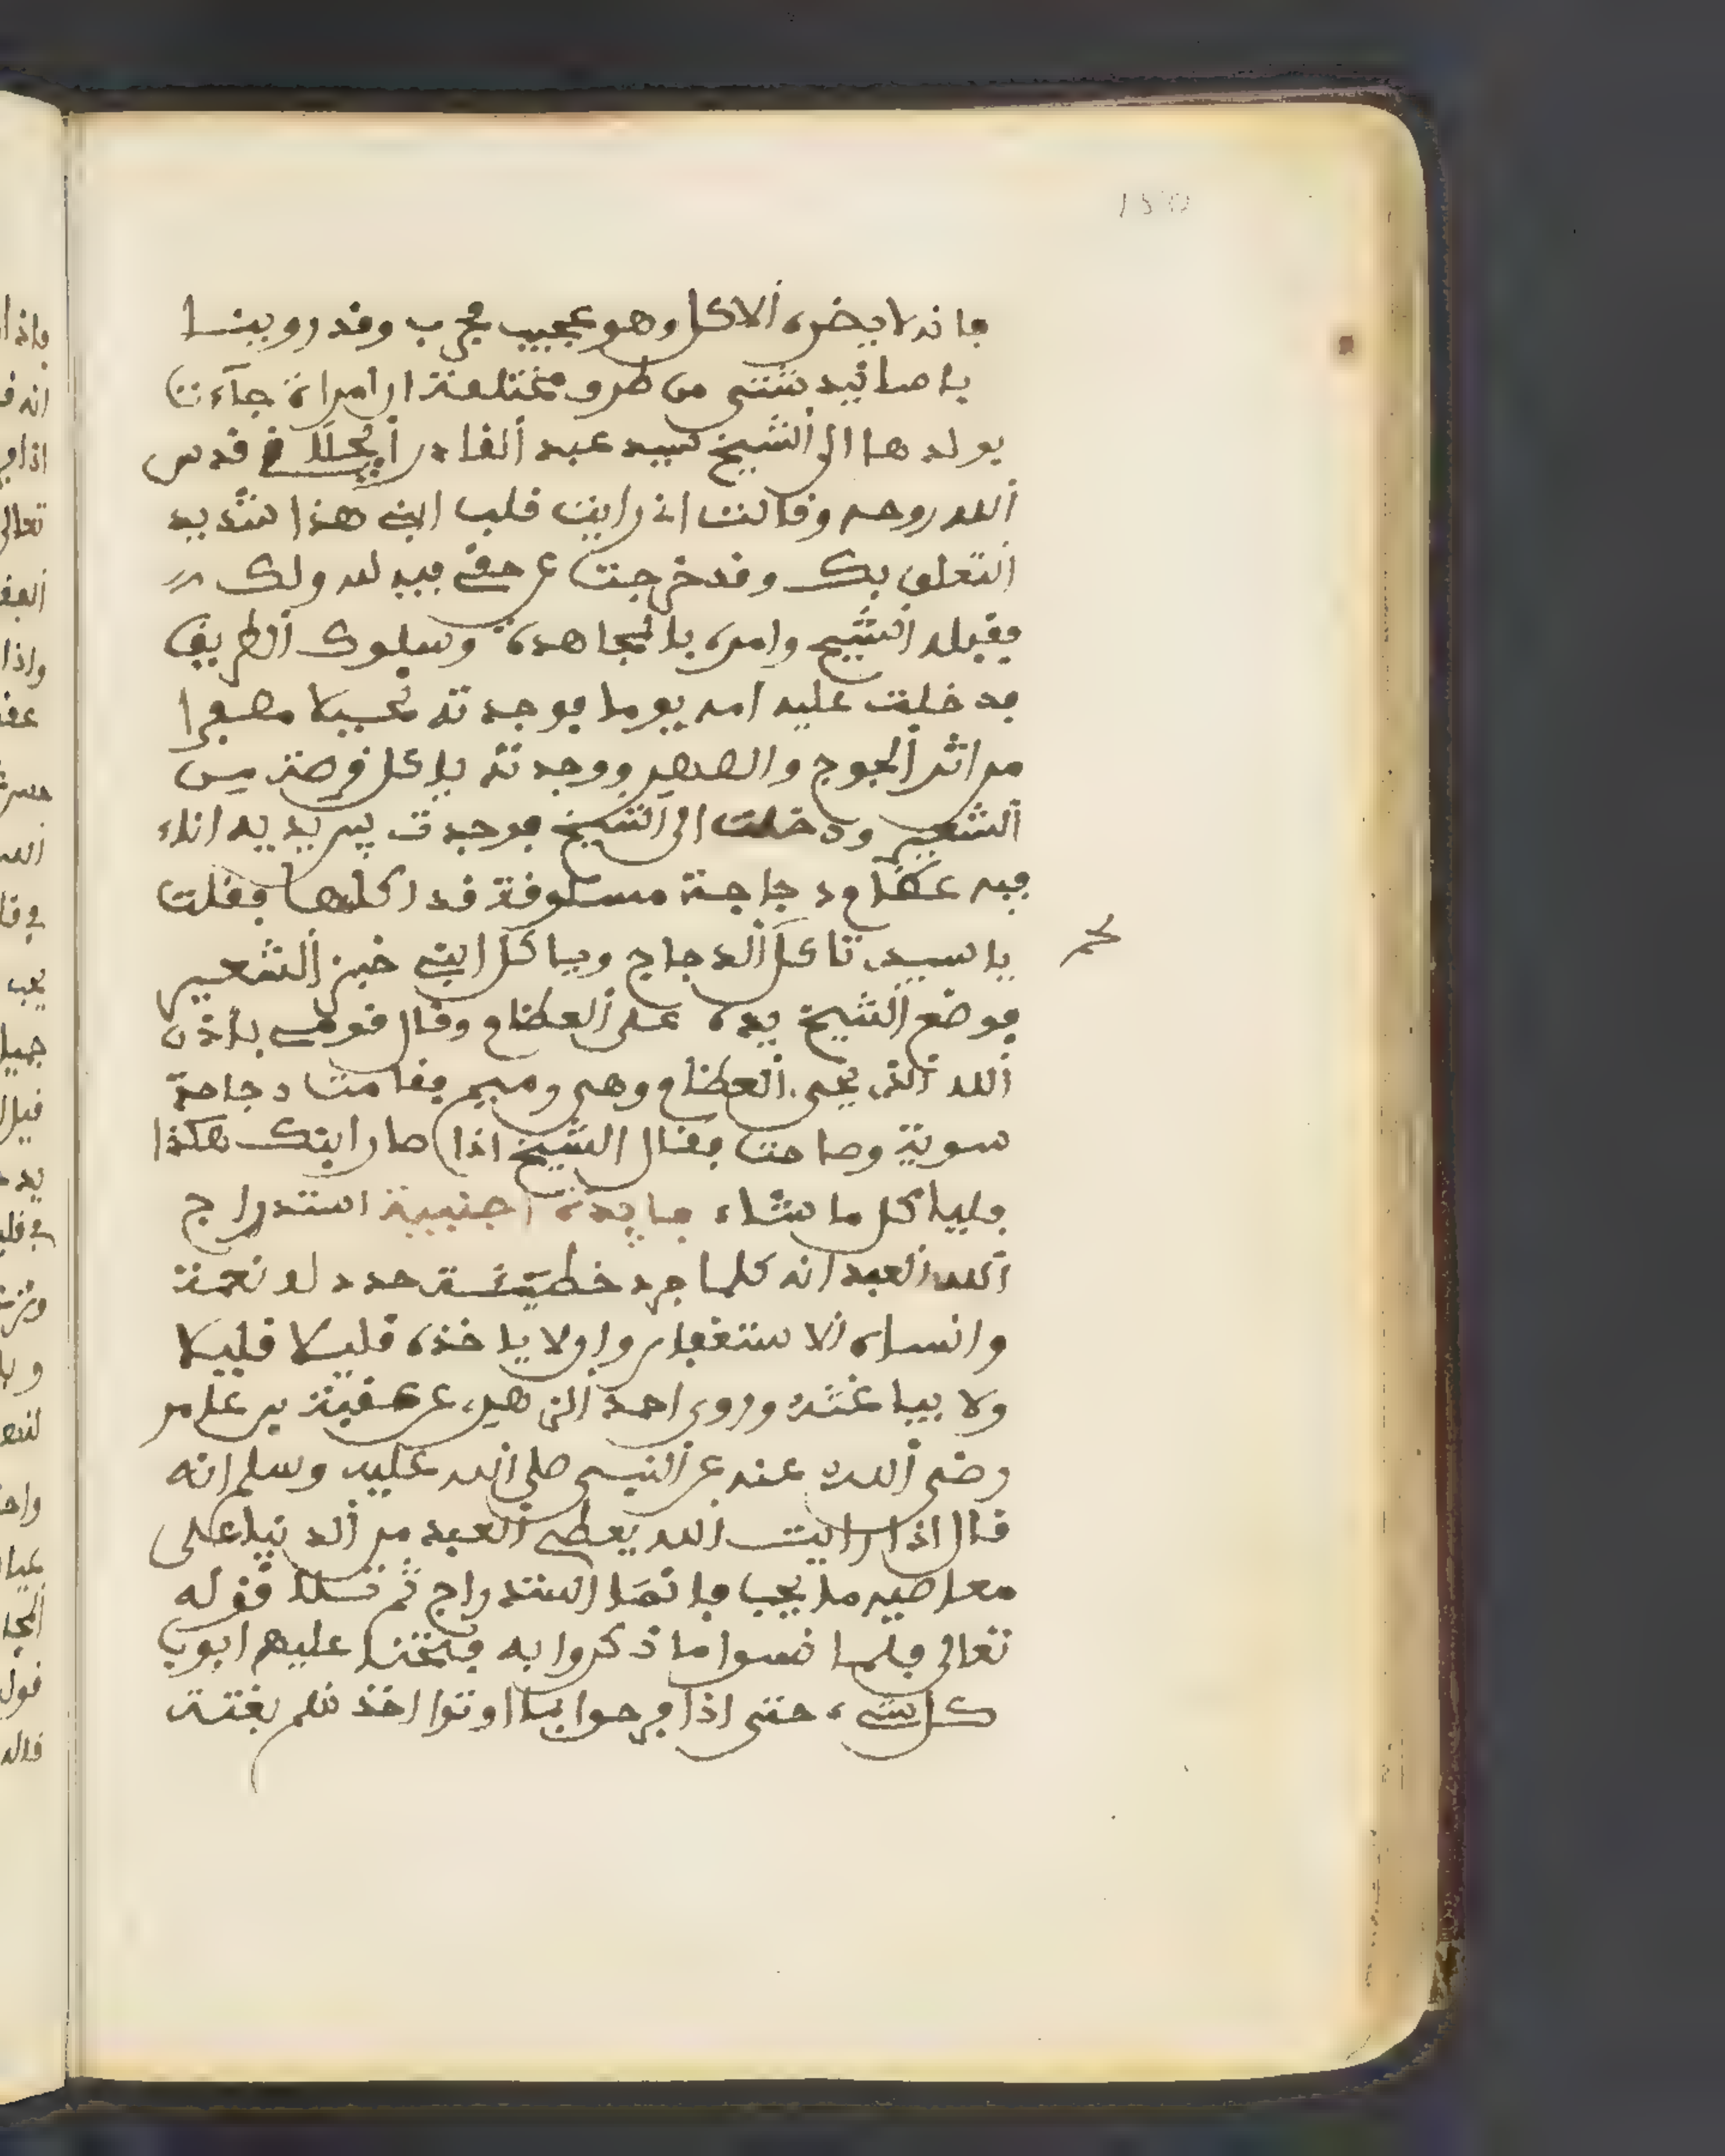 150
فانه لا يضره الاكل وهو عجيب مجرب وقد روينا
باسانيد شتى من طرو مختلفة ان امراة جاءت
بولدها الى الشيخ سيد عبد القادر الجيلاني قدس
الله روحه وقالت اني رايت قلب ابني هذا شديد
التعلق بك وقد خرجت عن حقي فيه لله ولك
فقبله الشيخ وامره بالمجاهدة وسلوك الطريق
فدخلت عليه امه يوما فوجدته نحيلا مصفرا
من اثر الجوع والسهر ووجدته ياكل قرصة من
الشعير ودخلت الى الشيخ فوجدت بين يديه اناء
فيه عظام دجاجة مسلوفة قد اكلها فقلت
يا سيدي تاكل الدجاج وياكل ابني خبز الشعير
فوضع الشيخ يده على العظام وقال قومي باذن
الله الذي يحي العظام وهي رميم فقامت دجاجة
سوية وصاحت فقال الشيخ اذا صار ابنك هكذا
فلياكل ما شاء فايدة اجنبية استدراج
الله العبد انه كلما جدد خطيئة جدد له نعمة
وانساه الاستغفار واولا ياخذه قليلا قليلا
ولا يباغته وروى احمد الزهير، عن عقبة بن عامر
رضي الله عنه عن النبي صلى الله عليه وسلم انه
قال اذا رايت الله يعطي العبد من الدنيا على
معاصيه ما يحب فانما استدراج ثم تلا قوله
تعالى فلما نسوا ما ذكروا به فتحنا عليهم ابوب
كل شيء حتى اذا فرحوا بما اوتوا اخذنهم بغتة